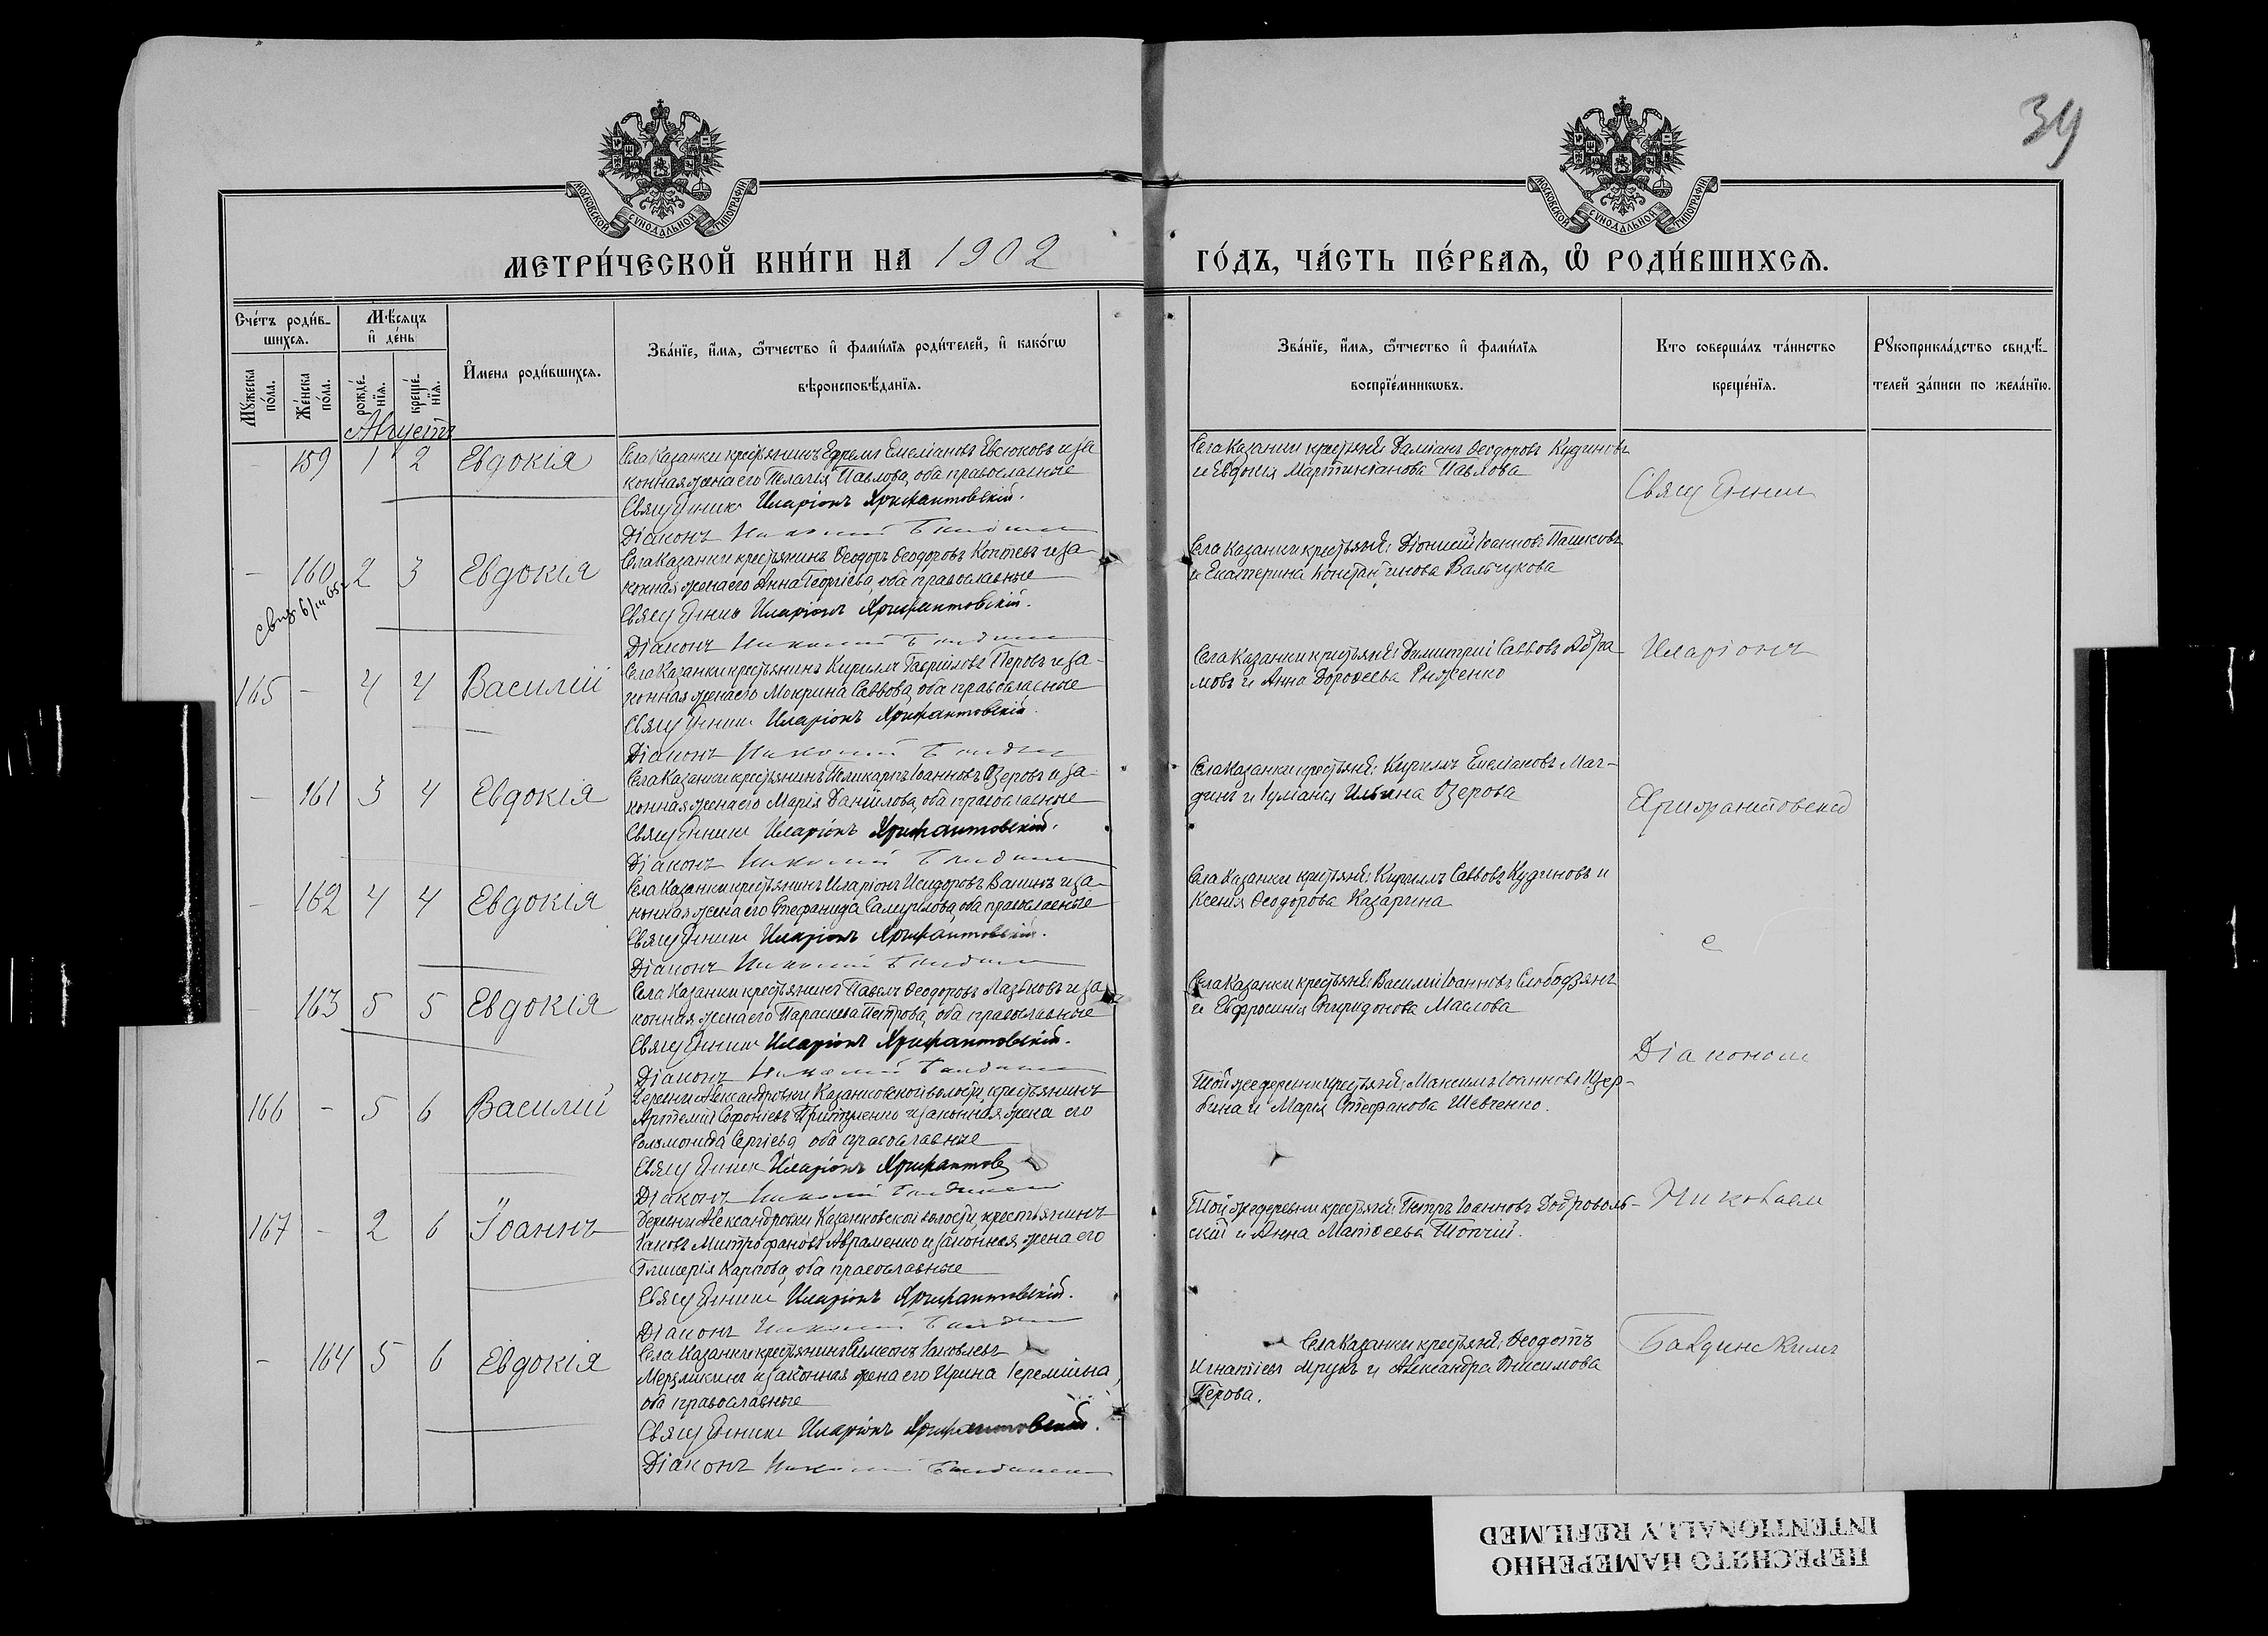 39
МОСКОВСКОЙ СУНОДАЛЬНОЙ ТИПОГРАФІИ
МОСКОВСКОЙ СУНОДАЛЬНОЙ ТИПОГРАФІИ
МЕТРИ́ЧЕСКОЙ КНИ́ГИ НА 1902
ГО́ДЪ, ЧА́СТЬ ПЕ́РВАѦ, Ѽ РОДИ́ВШИХСѦ.
Сче́тъ роди́в-
шихсѧ.
Мꙋ́жеска по́ла.
Же́нска по́ла.
Мѣ́сѧцъ
и҆ де́нь
рожде́-
нїѧ.
креще́-
нїѧ.
И҆мена роди́вшихсѧ.
Зва́нїе, и҆́мѧ, ѻ҆́тчество и҆ фами́лїѧ роди́телей, и҆ како́гѡ
вѣроисповѣ́данїѧ.
Зва́нїе, и҆́мѧ, ѻ҆́тчество и҆ фами́лїѧ
воспрїе́мникѡвъ.
Кто соверша́лъ та́инство
креще́нїѧ.
Рꙋкоприкла́дство свидѣ́-
телей за́писи по жела́нїю.
Августъ
- 159 1 2 Евдокія
Села Казанки крестьянинъ Ефремъ Емеліановъ Евсюковъ и за
конная жена его Пелагія Павлова, оба православные
Священникъ Иларіонъ Хрисантовскій.
Діаконъ Николай
Села Казанки крестьяне: Даміанъ Ѳеодоровъ Кудиновъ
и Евдокія Мартиніанова Павлова
Священник
- 160 2 3 Евдокія
Села Казанки крестьянинъ Ѳеодоръ Ѳеодоровъ Коптевъ и за-
конная жена его Анна Георгіева, оба православные
Священникъ Иларіонъ Хрисантовскій.
Діаконъ Николай
Села Казанки крестьяне: Діонисій Іоанновъ Пашковъ
и Екатерина Константинова Вальчукова
165 - 4 4 Василій
Села Казанки крестьянинъ Кириллъ Гавріиловъ Перовъ и за-
конная жена его Мокрина Саввова, оба православные
Священникъ Иларіонъ Хрисантовскій
Діаконъ Николай
Села Казанки крестьяне: Димитрій Саввовъ Абра
мовъ и Анна Дороѳеева Рыженко
Иларіонъ
- 161 3 4 Евдокія
Села Казанки крестьянинъ Поликарпъ Іоанновъ Озеровъ и за-
конная жена его Марія Даніилова, оба православные
Священникъ Иларіонъ Хрисантовскій.
Діаконъ Николай
Села Казанки крестьяне: Кириллъ Емеліановъ
и Іуліанія Ильина Озерова
Хрисантовскій
- 162 4 4 Евдокія
Села Казанки крестьянинъ Иларіонъ Исидоровъ Ванинъ и за-
конная жена его Стефанида Самуилова, оба православные
Священникъ Иларіонъ Хрисантовскій.
Діаконъ Николай
Села Казанки крестьяне: Кириллъ Саввовъ Кудиновъ и
Ксенія Ѳеодорова Казарина
с
- 163 5 5 Евдокія
Села Казанки крестьянинъ Павелъ Ѳеодоровъ Лазьковъ и за
конная жена его Параскева Петрова, оба православные
Священникъ Иларіонъ Хрисантовскій.
Діаконъ Николай
Села Казанки крестьяне: Василій Іоанновъ Слободзянъ
и Евфросинія Спиридонова Маслова
Діаконом
166 - 5 6 Василій
Деревни Александровки Казанковской волости, крестьянинъ
Артемій Софоніевъ Притуленко и законная жена его
Соломонида Сергіева, оба православные
Священник Иларіонъ Хрисантов
Діаконъ Николай
Той же деревни крестьяне: Максимъ Іоанновъ Щер-
бина и Марія Стефанова Шевченко.
167 - 2 6 Іоаннъ
Деревни Александровки Казанковской волости, крестьянинъ
Іаковъ Митрофановъ Авраменко и законная жена его
Гликерія Карпова, оба православные
Священникъ Иларіонъ Хрисантовскій.
Діаконъ Николай
Той же деревни крестьяне: Петръ Іоанновъ Доброволь-
скій и Анна Матѳеева Топчій.
Николаем
- 164 5 6 Евдокія
Села Казанки крестьянинъ Симеонъ Іаковлевъ
Мерзликинъ и законная жена его Ирина Іереміина,
оба православные
Священникъ Иларіонъ Хрисантовскій.
Діаконъ Николай
Села Казанки крестьяне: Ѳеодотъ
Игнатіевъ и Александра Онисимова
Перова.
Балдинскимъ
ПЕРЕСНЯТО НАМЕРЕННО
INTENTIONALLY REFILMED